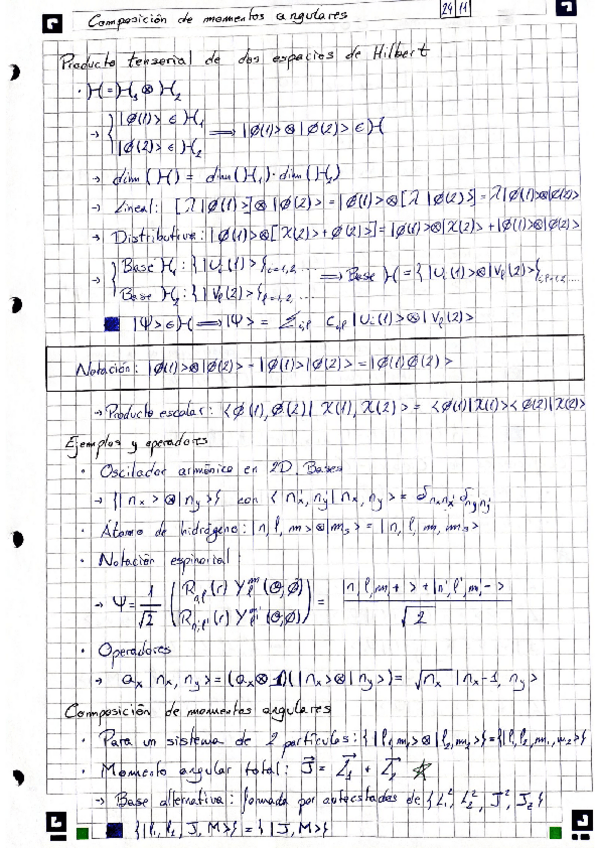 Composición de momentos angulares 24 | 11
Producto tensorial de dos espacios de Hilbert
· H = H₁ ⊗ H₂
→ { |φ(1)> ∈ H₁
|φ(2)> ∈ H₂ ⟹ |φ(1)> ⊗ |φ(2)> ∈ H
→ dim (H) = dim (H₁) · dim (H₂)
→ Lineal: [λ|φ(1)>] ⊗ |φ(2)> = |φ(1)> ⊗ [λ|φ(2)>] = λ|φ(1)>⊗|φ(2)>
→ Distributiva: |φ(1)> ⊗ [χ(2)> + φ(2)>] = |φ(1)>⊗|χ(2)> + |φ(1)>⊗|φ(2)>
→ { Base H₁: {|Uᵢ(1)>}ᵢ₌₁,₂,...
Base H₂: {|Vₗ(2)>}ₗ₌₁,₂ ... ⟹ Base H = {|Uᵢ(1)>⊗|Vₗ(2)>}ᵢ,ₗ₌₁,₂...
|Ψ> ∈ H ⟹ |Ψ> = Σᵢ,ₗ Cᵢ,ₗ |Uᵢ(1)>⊗|Vₗ(2)>
Notación: |φ(1)>⊗|φ(2)> = |φ(1)>|φ(2)> = |φ(1)φ(2)>
→ Producto escalar: <φ(1),φ(2)|χ(1),χ(2)> = <φ(1)|χ(1)><φ(2)|χ(2)>
Ejemplos y operadores
· Oscilador armónico en 2D. Bases
→ {|nx>⊗|ny>} con <n'x, n'y|nx, ny> = δnxn'x δnyn'y
· Átomo de hidrógeno: |n, l, m>⊗|ms> = |n, l, m, ms>
· Notación espinorial
→ Ψ = 1/√2 ( Rn,l(r) Yₗᵐ(θ,φ)
Rn',l'(r) Yₗ'ᵐ'(θ,φ) ) = |n,l,m,+> + |n',l',m',-> / √2
· Operadores
→ ax |nx, ny> = (ax⊗1)(|nx>⊗|ny>) = √nx |nx-1, ny>
Composición de momentos angulares
· Para un sistema de 2 partículas: {|l₁,m₁>⊗|l₂,m₂>} = {|l₁,l₂,m₁,m₂>}
· Momento angular total: J = L₁ + L₂ ☆
→ Base alternativa: formada por autoestados de {L₁², L₂², J², Jz}
{|l₁, l₂, J, M>} = {|J, M>}